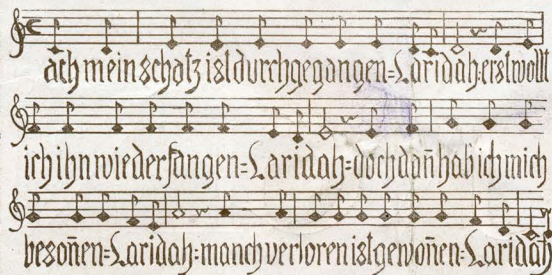 ach mein schatz ist durchgegangen=Laridah:erst wollt
ich ihn wieder fangen=Laridah=doch dan̄ hab ich mich
beson̄en=Laridah:manch verloren ist gewon̄en=Laridah